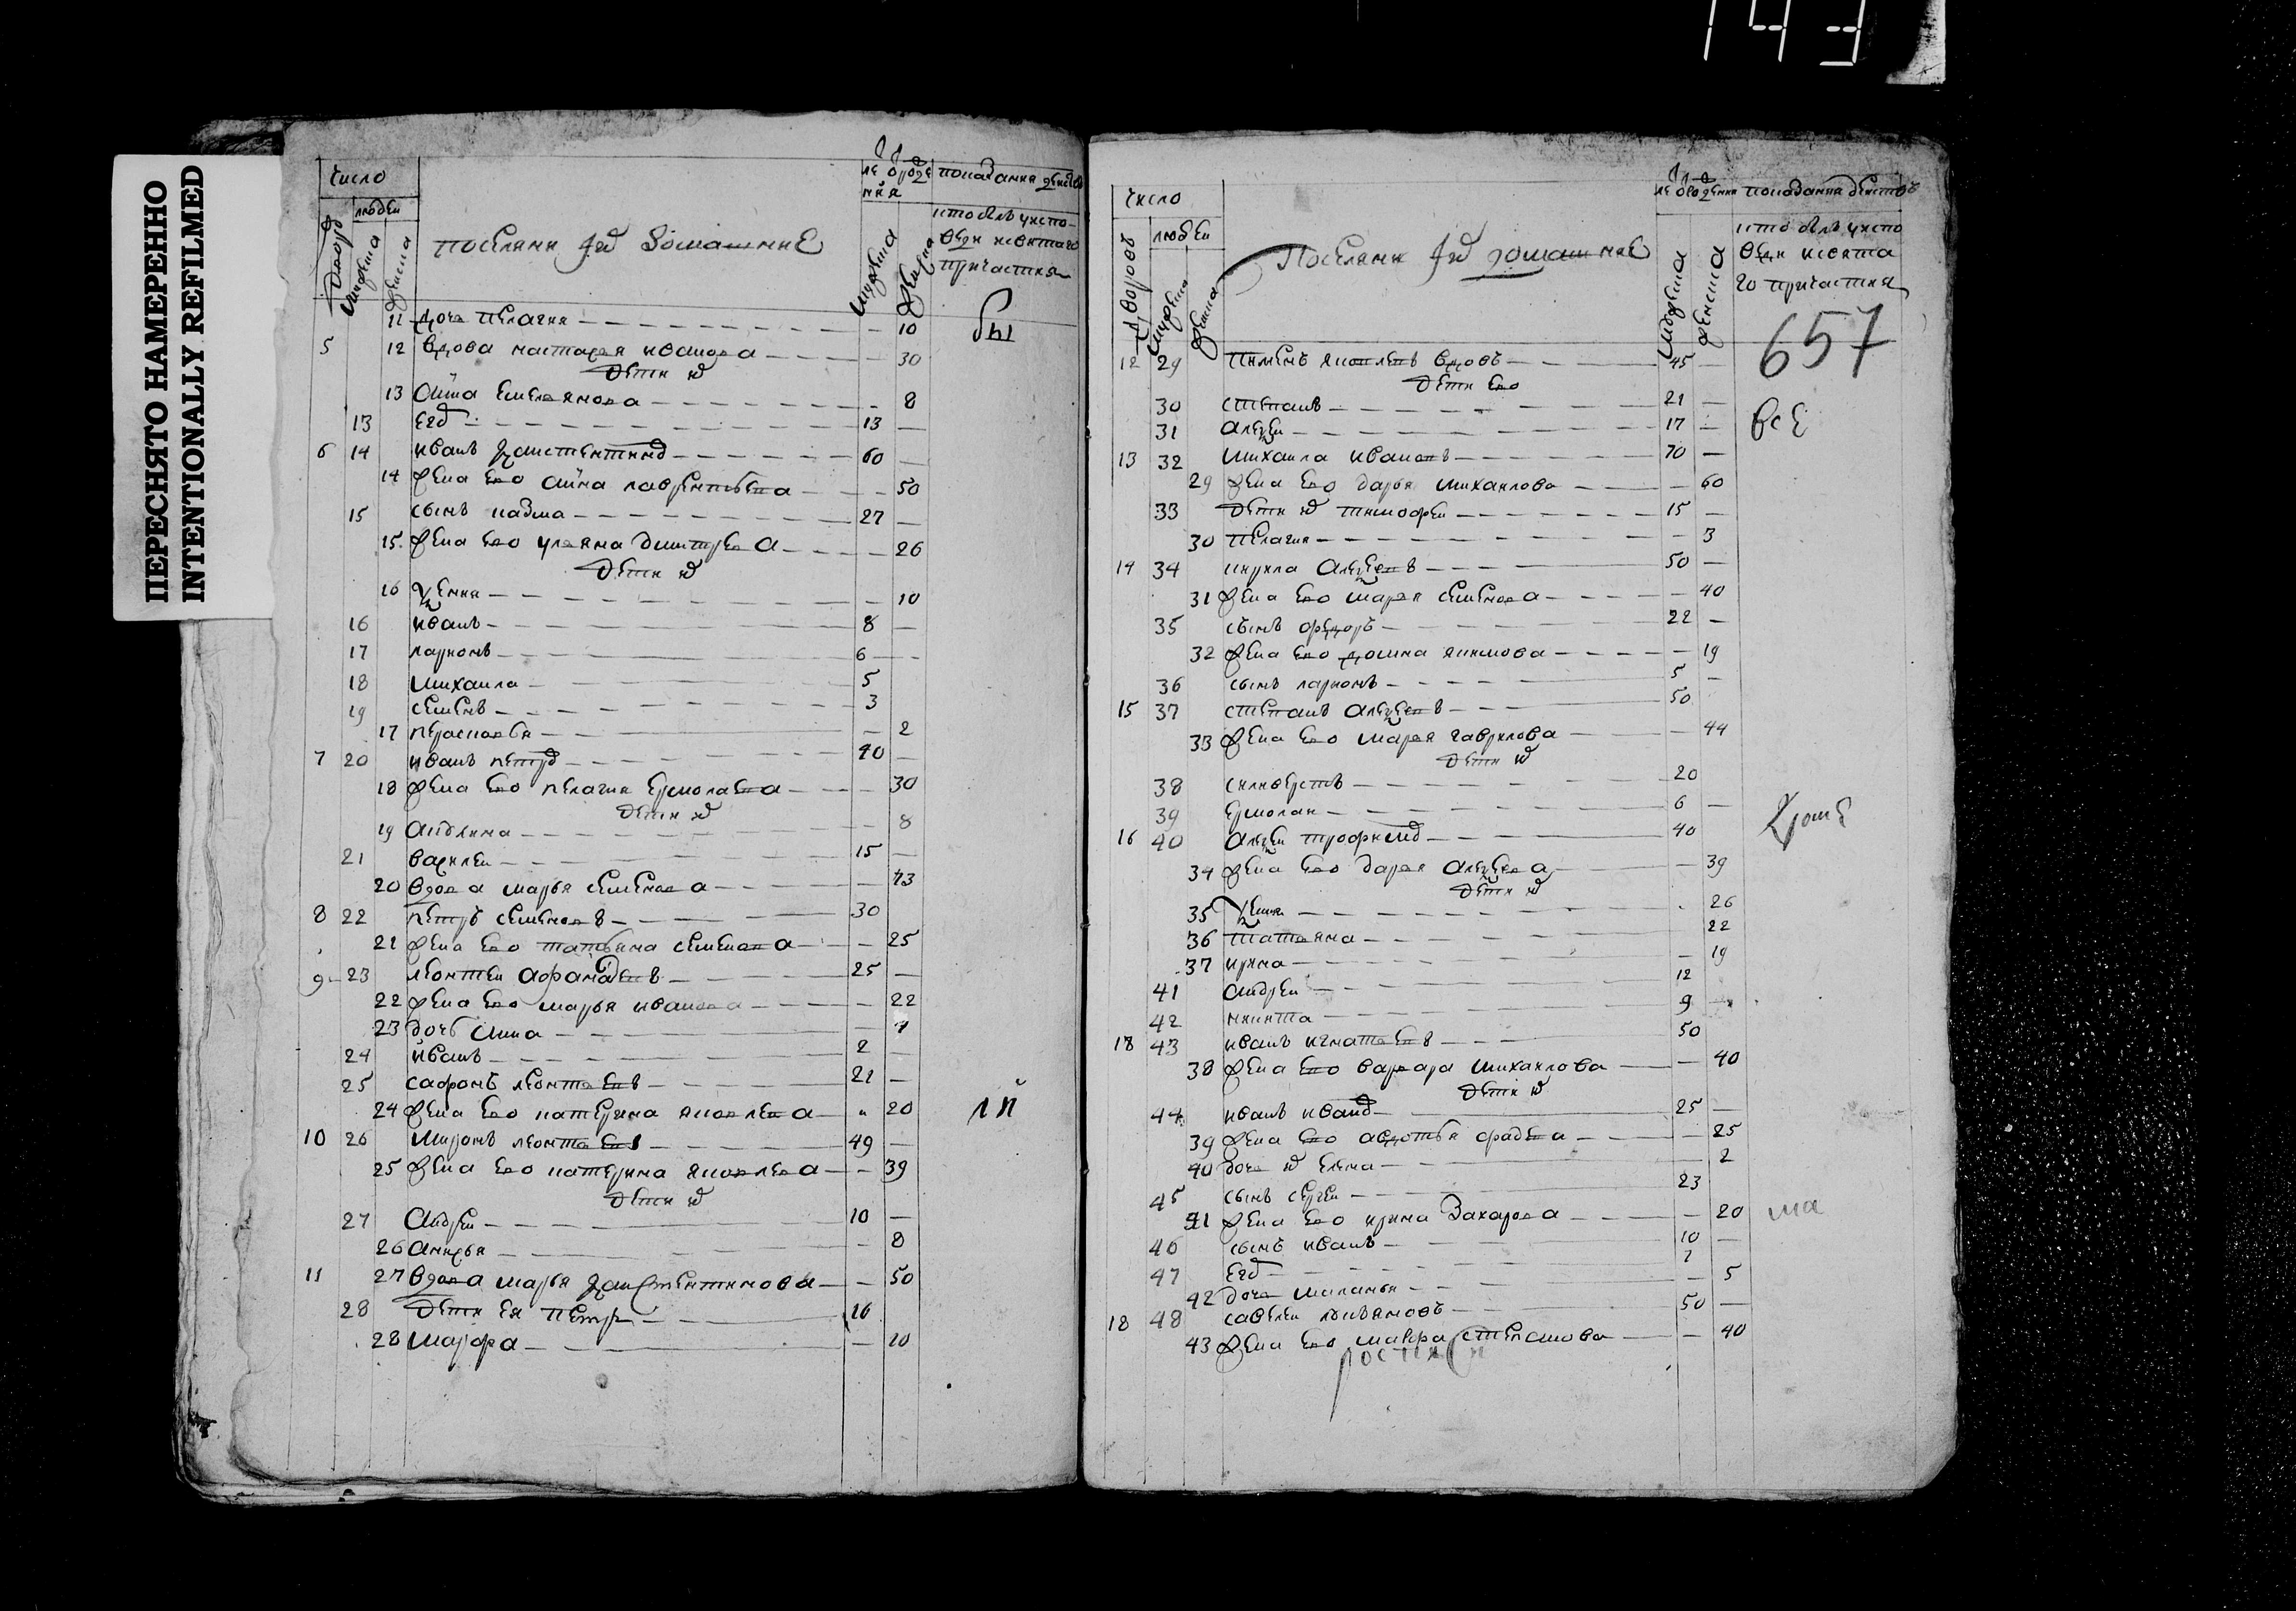 143
ПЕРЕСНЯТО НАМЕРЕННО
INTENTIONALLY REFILMED
число
людеи
поселяня домашние
показания
исто былъ у испо-
веди и святаго
причастия
11 доче пелагия 10
5 12 вдова настасея иванова 30
дети их
13 анна емельянова 8
13 егор 13
6 14 иванъ константинов 60
14 жена ево анна лаврентьева 50
15 сынъ кузма 27
15 жена ево уляна дмитриева 26
дети их
16 ксения 10
16 иванъ 8
17 ларионъ 6
18 михаила 5
19 семенъ 3
17 перасковья 2
7 20 иванъ петров 40
18 жена ево пелагия ермолаева 30
дети их
19 акилина 8
21 василеи 15
20 вдова марья семенова 73
8 22 петръ семеновъ 30
21 жена ево татьяна семенова 25
9 23 леонтеи афанасевъ 25
22 жена ево марья иванова 22
23 дочь анна 7
24 иванъ 2
25 сафонъ леонтьевъ 21
24 жена ево катерина яковлева 20
10 26 миронъ леонтьевъ 49
25 жена ево катерина яковлева 39
дети их
27 андреи 10
26 анисья 8
11 27 вдова марья константинова 50
28 дети ея петръ 16
28 марфа 10
бы
ли
число
дворовъ людеи
Поселяня домашние
показания
исто былъ у испо
веди и свята
го причастия
657
12 29 пименъ яковлевъ вдовъ 45
дети ево
30 степанъ 21
31 алексеи 17
13 32 михаила ивановъ 70
29 жена ево дарья михаилова 60
33 дети их тимофеи 15
30 пелагия 3
14 34 кирила алексеевъ 50
31 жена ево марея семенова 40
35 сынъ федоръ 22
32 жена ево домна якимова 19
36 сынъ ларионъ 5
15 37 степанъ алексеевъ 50
33 жена ево марея гаврилова 44
дети их
38 силиверстъ 20
39 ермолаи 6
16 40 алексеи трофимов 40
34 жена ево дарея алексеева 39
дети их
35 ксения 26
36 татьяна 22
37 ирина 19
41 андреи 12
42 никита 9
18 43 иванъ игнатьевъ 50
38 жена ево варвара михаилова 40
дети их
44 иванъ иванов 25
39 жена ево авдотья фадеева 25
40 доче их елена 2
45 сынъ сергеи 23
41 жена ево ирина Захарова 20
46 сынъ иванъ 10
47 егор 7
42 доче маланья 5
18 48 савелеи 50
43 жена ево мавра степанова 40
все
кроме
роспися